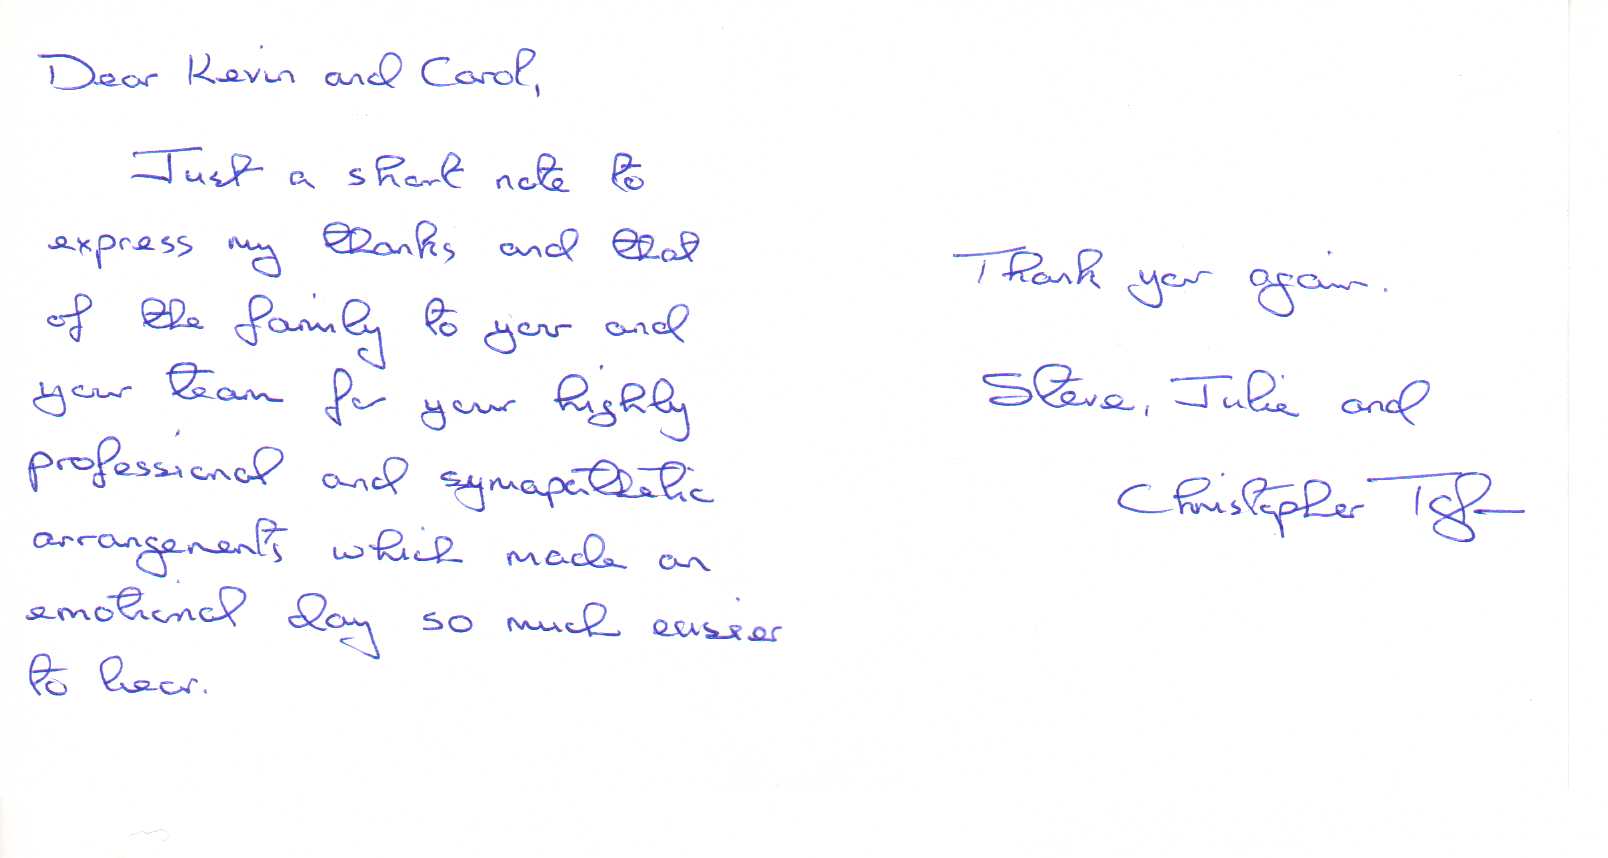 Dear Kevin and Carol,
Just a short note to
express my thanks and that
of the family to you and
your team for your highly
professional and symapathetic
arrangements which made an
emotional day so much easier
to bear.
Thank you again.
Steve, Julie and
Christopher